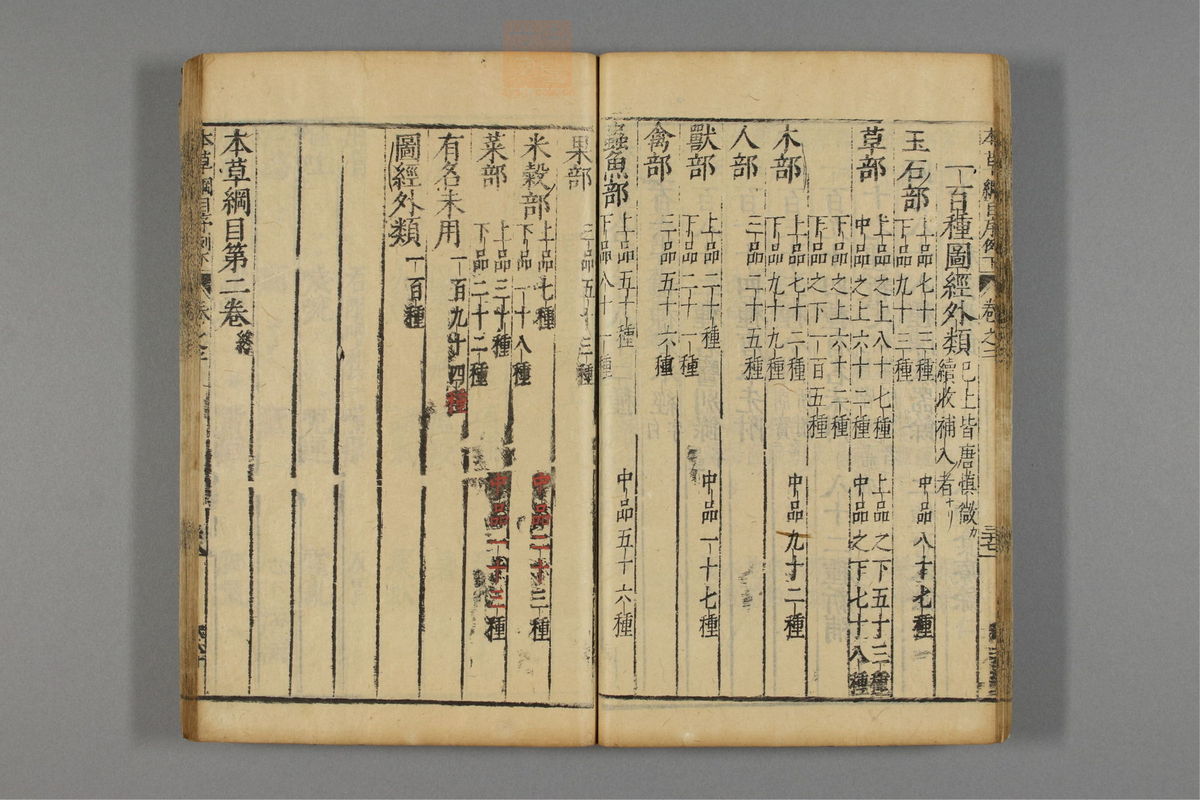 一百種圖經外類 巳上皆唐慎微
續收補入者
玉石部 上品七十三種 中品八十七種
下品九十三種
草部 上品之上八十七種 上品之下五十三種
中品之上六十二種 中品之下七十八種
下品之上六十二種
下品之下一百五種
木部 上品七十二種 中品九十二種
下品九十九種
人部 三品二十五種
獸部 上品二十種 中品一十七種
下品二十一種
禽部 三品五十六種
蟲魚部 上品五十種 中品五十六種
下品八十一種
果部 三品五十三種
米穀部 上品七種 中品二十三種
下品一十八種
菜部 上品三十種 中品一十三種
下品二十二種
有名未用 一百九十四種
圖經外類 一百種
本草綱目第二卷終